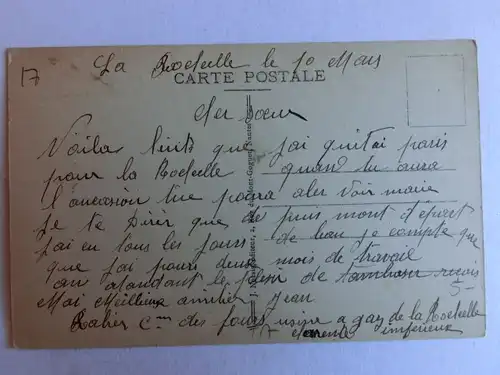 17
La Rochelle le 10 Mars
CARTE POSTALE
Cher soeur
Voila huit que jai quitai paris
pour la Rochelle quand tu aura
l'ancasion tue poura aler voir maie
je te direr que de puis mont depart
jai eu tous les jours de leau je compte que
que jai pour deux mois de travail
an atandant le plesir de recois
Mai Meilleux amitier jean 5-
Ratier des fours usine a gaz de la Rochelle
inferieux